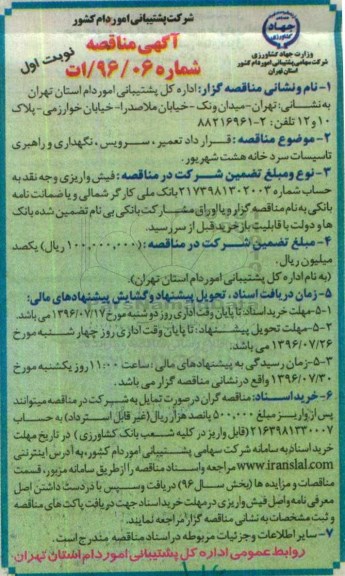 شرکت پشتیبانی امور دام کشور
جهاد
کشاورزی
وزارت جهاد کشاورزی
شرکت سهامی پشتیبانی امور دام کشور
استان تهران
آگهی مناقصه
شماره ۹۶/۰۶/ات
نوبت اول
۱- نام و نشانی مناقصه گزار: اداره کل پشتیبانی امور دام استان تهران
به نشانی: تهران - میدان ونک - خیابان ملاصدرا - خیابان خوارزمی - پلاک
۱۰ و ۱۲ تلفن: ۲-۸۸۲۱۶۹۶۱
۲- موضوع مناقصه: قرار داد تعمیر، سرویس، نگهداری و راهبری
تاسیسات سردخانه هشت شهریور.
۳- نوع ومبلغ تضمین شرکت در مناقصه: فیش واریزی وجه نقد به
حساب شماره ۲۱۷۳۹۸۱۳۰۲۰۰۳ بانک ملی کارگر شمالی و یا ضمانت نامه
بانکی به نام مناقصه گزار و یا اوراق مشارکت بانکی بی نام تضمین شده بانک
ها و دولت با قابلیت بازخرید قبل از سررسید.
۴- مبلغ تضمین شرکت در مناقصه: (۱۰۰,۰۰۰,۰۰۰ ریال) یکصد
میلیون ریال.
(به نام اداره کل پشتیبانی امور دام استان تهران).
۵- زمان دریافت اسناد، تحویل پیشنهاد و گشایش پیشنهادهای مالی:
۵-۱- مهلت خرید اسناد: تا پایان وقت اداری روز دو شنبه مورخ ۱۳۹۶/۰۷/۱۷ می باشد.
۵-۲- مهلت تحویل پیشنهاد: تا پایان وقت اداری روز چهار شنبه مورخ
۱۳۹۶/۰۷/۲۶ می باشد.
۵-۳- زمان رسیدگی به پیشنهادهای مالی: ساعت ۱۱:۰۰ روز یکشنبه مورخ
۱۳۹۶/۰۷/۳۰ واقع در نشانی مناقصه گزار می باشد.
۶- خرید اسناد: مناقصه گران در صورت تمایل به شرکت در مناقصه میتوانند
پس از واریز مبلغ ۵۰۰,۰۰۰ پانصد هزار ریال (غیر قابل استرداد) به حساب
۲۱۶۳۹۸۱۳۳۰۰۷ (قابل واریز در کلیه شعب بانک کشاورزی) در تاریخ مهلت
خرید اسناد به سامانه شرکت سهامی پشتیبانی امور دام کشور، به آدرس اینترنتی
www.iranslal.com مراجعه و اسناد مناقصه را از طریق سامانه مزبور، قسمت
مناقصات و مزایده ها (بخش سال ۹۶) دریافت وسپس با در دست داشتن اصل
معرفی نامه و اصل فیش واریزی در مهلت خرید اسناد جهت دریافت پاکت های مناقصه
و ثبت مشخصات به نشانی مناقصه گزار مراجعه نمایند.
۷- سایر اطلاعات و جزئیات مربوطه در اسناد مناقصه مندرج است.
روابط عمومی اداره کل پشتیبانی امور دام استان تهران